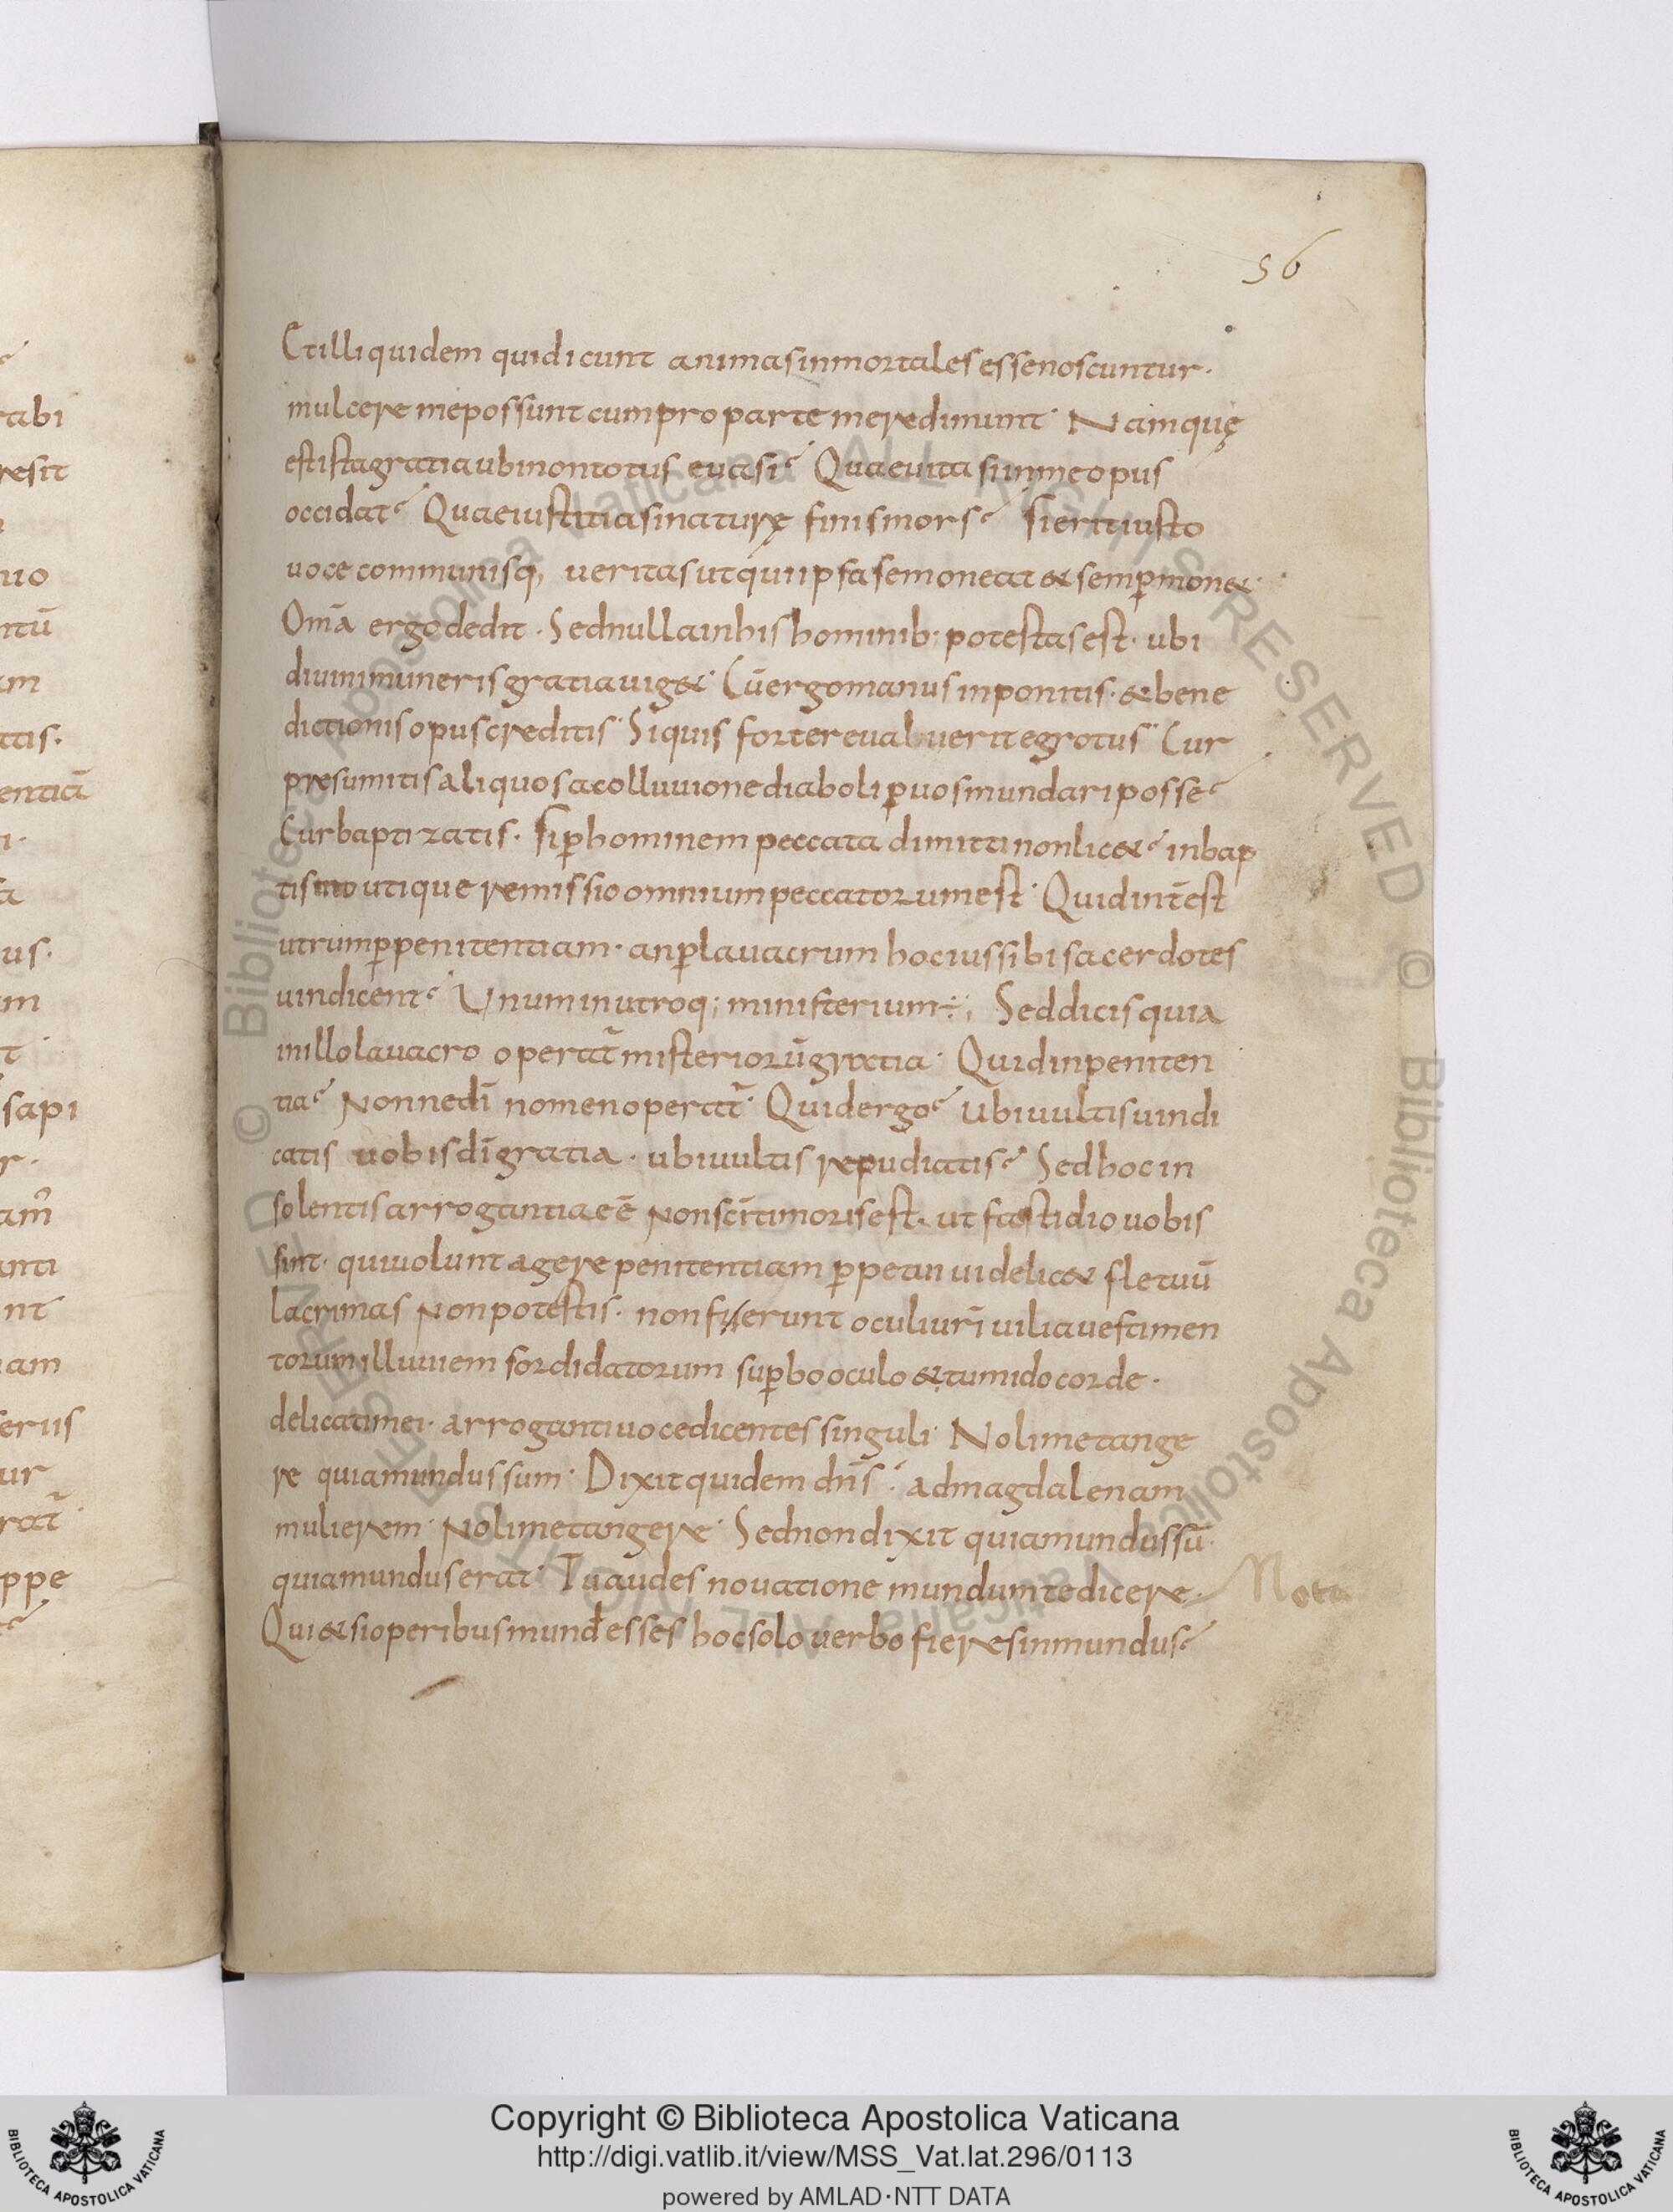 56
Et illi quidem qui dicunt animas inmortales esse noscuntur·
mulcere me possunt cum pro parte me redimunt· Nam quę
est ista gratia ubi non totus euasi? Quae uita si in me opus
occidat? Quae iustitia si naturę finis mors? si erit iusto
uoce communisq; ueritas ut qui ipsa se moneat & semp̄ mon&·
Om̄a ergo dedit· Sed nulla in his hominib: potestas est· ubi
diuini muneris gratia uig&· Cū ergo manus inponitis· & bene
dictionis opus creditis· Si quis forte reualuerit egrotus· Cur
presumitis aliquos a colluuione diaboli p̄ uos mundari posse?
Cur baptizatis· si p̄ hominem peccata dimitti non lic&? in bap
tismo utique remissio omnium peccatorum est· Quid int̄est
utrum p̄ penitentiam· an p̄ lauacrum hoc ius sibi sacerdotes
uindicent? Unum in utroq; ministerium ÷; Sed dicis quia
in illo lauacro operat̄ misteriorū gratia· Quid in peniten
tia? Nonne dī nomen operat̄· Quid ergo? Ubi uultis uindi
catis uobis dī gratia· ubi uultis repudiatis? Sed hoc in
solentis arrogantiae ē non scī timoris est· ut fastidio uobis
sint· qui uolunt agere penitentiam p̄peti uidelic& fletuū
lacrimas non potestis· non fuerunt oculi urī uilia uestimen
torum illuuiem sordidatorum sup̄bo oculo & tumido corde·
delicati mei· arroganti uoce dicentes singuli· Noli me tange
re quia mundus sum· Dixit quidem dn̄s· ad magdalenam
mulierem· Noli me tangere· Sed non dixit quia mundus sū·
quia mundus erat· Tu audes nouatione mundum te dicere·
Nota
Qui & si operibus mund' esses hoc solo uerbo fieres inmundus?
abi
resit
uo
ntū
am
tis·
entiā
us·
am
sapi
am̄
anti
nt
iam
eriis
ur
rat̄
ppe
© Biblioteca Apostolica Vaticana ALL RIGHTS RESERVED
© Biblioteca Apostolica Vaticana ALL RIGHTS RESERVED
BIBLIOTECA APOSTOLICA VATICANA
Copyright © Biblioteca Apostolica Vaticana
http://digi.vatlib.it/view/MSS_Vat.lat.296/0113
powered by AMLAD·NTT DATA
BIBLIOTECA APOSTOLICA VATICANA